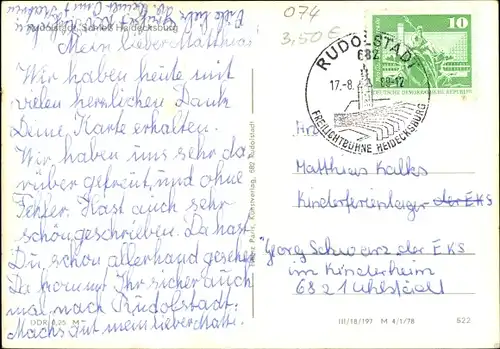 Rudolstadt, Schloß Heidecksburg
Mein lieber Matthias
Wir haben heute mit
vielen herzlichen Dank
Deine Karte erhalten.
Wir haben uns sehr da-
rüber gefreut, und ohne
Fehler. Hast auch sehr
schön geschrieben. Da hast
Du, schon allerhand gesehen
Da kommt Ihr sicher auch
mal nach Rudolstadt.
Machs gut mein lieber Matti.
DDR 0,25 M
III/18/197 M 4/1/78
622
074
3,50 €
10
DEUTSCHE DEMOKRATISCHE REPUBLIK
RUDOLSTADT
682
17.-8.
-12
FREILICHTBÜHNE HEIDECKSBURG
Matthias Kalks
Kinderferienlager der EKS
Georg Schwarz der EKS
im Kinderheim
6821 Uhlstädt